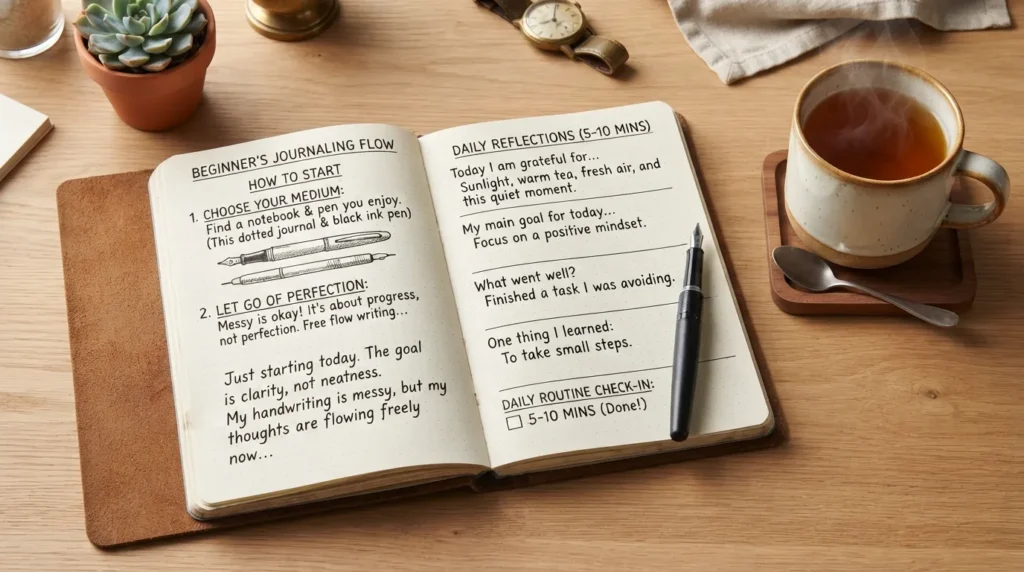 BEGINNER'S JOURNALING FLOW
HOW TO START
1. CHOOSE YOUR MEDIUM:
Find a notebook & pen you enjoy.
(This dotted journal & black ink pen)
2. LET GO OF PERFECTION:
Messy is okay! It's about progress,
not perfection. Free flow writing...
Just starting today. The goal
is clarity, not neatness.
My handwriting is messy, but my
thoughts are flowing freely
now...
DAILY REFLECTIONS (5-10 MINS)
Today I am grateful for...
Sunlight, warm tea, fresh air, and
this quiet moment.
My main goal for today...
Focus on a positive mindset.
What went well?
Finished a task I was avoiding.
One thing I learned:
To take small steps.
DAILY ROUTINE CHECK-IN:
☐ 5-10 MINS (Done!)